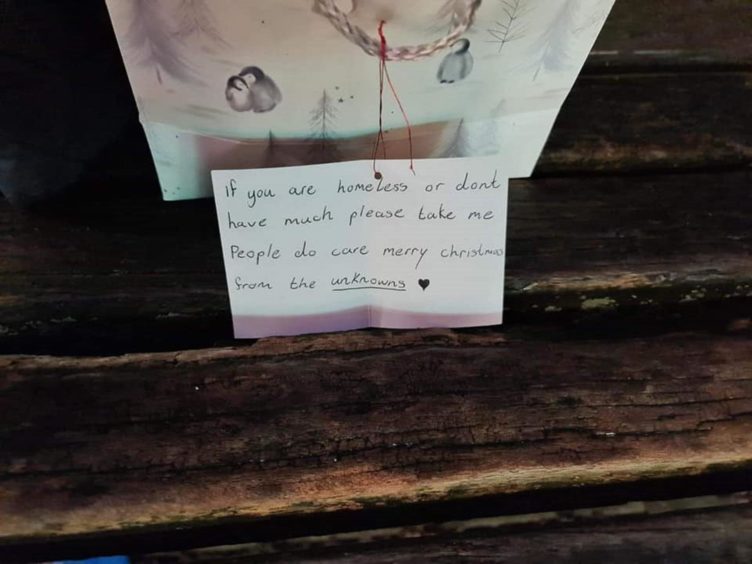 if you are homeless or dont
have much please take me
People do care merry christmas
from the unknowns ♥